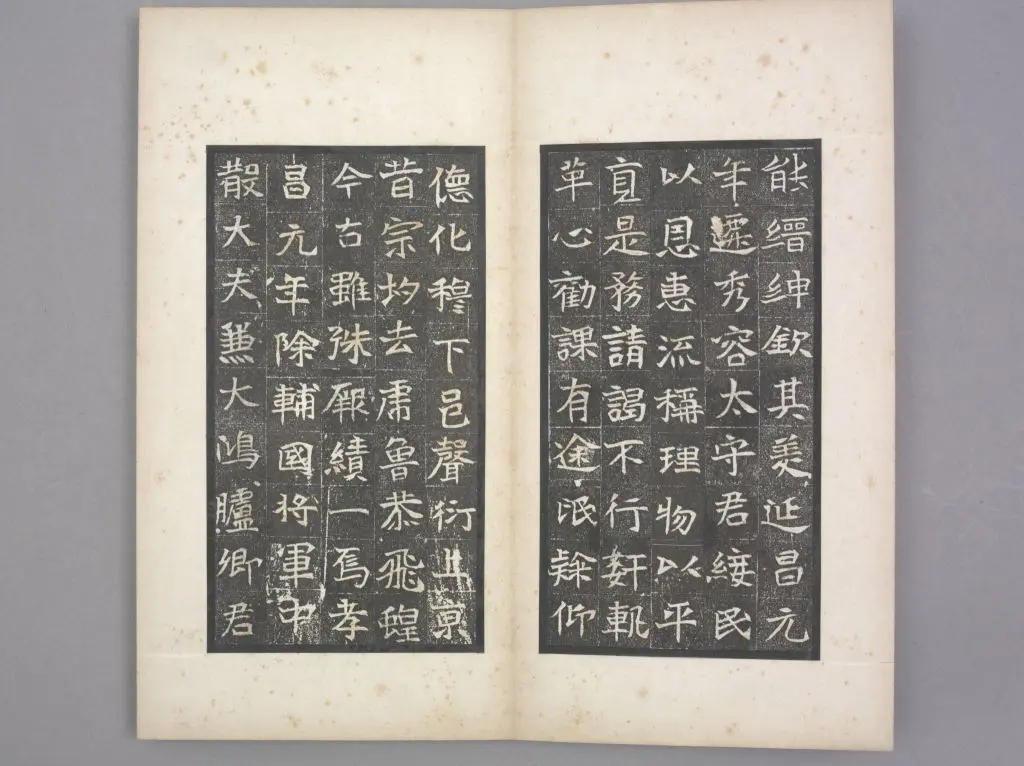 能縉紳欽其美延昌元
年遷秀容太守君綏民
以恩惠流稱理物以平
直是務請謁不行姧軌
革心勸課有途氓隸仰
德化穆下邑聲衍上京
昔宗均去虎魯恭飛蝗
今古雖殊厥績一焉孝
昌元年除輔國將軍中
散大夫兼大鴻臚卿君